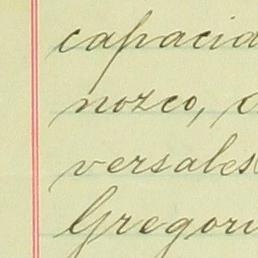 capacid
nozco, c
versales
Gregori